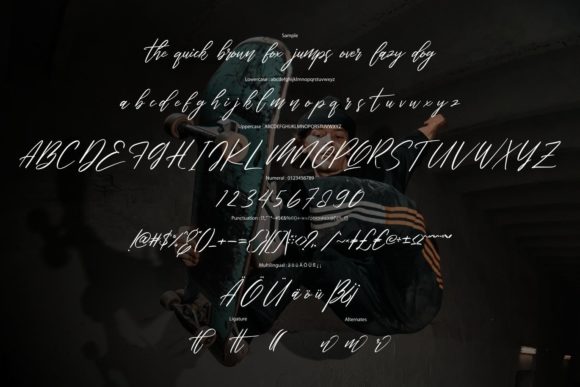 Sample
the quick brown fox jumps over lazy dog
Lowercase : abcdefghijklmnopqrstuvwxyz
a b c d e f g h i j k l m n o p q r s t u v w x y z
Uppercase : ABCDEFGHIJKLMNOPQRSTUVWXYZ
ABCDEFGHIJKLMNOPQRSTUVWXYZ
Numeral : 0123456789
1234567890
Punctuation :
Multilingual : ä ö ü Ä Ö Ü ß ¡ ¿
Ä Ö Ü ä ö ü ß
Ligature Alternates
tl tt ll n m r